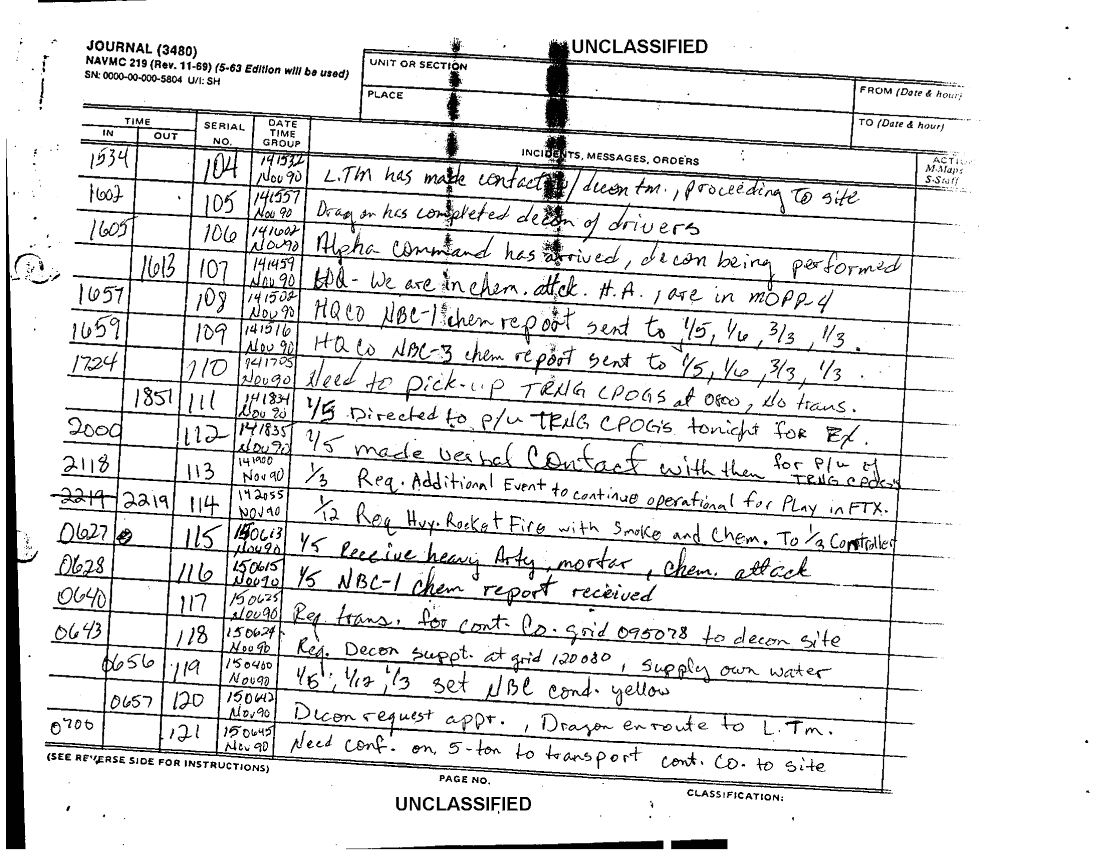 UNCLASSIFIED
JOURNAL (3480)
NAVMC 219 (Rev. 11-69) (5-63 Edition will be used)
SN: 0000-00-000-5804 U/I: SH
UNIT OR SECTION
PLACE
FROM (Date & hour)
TO (Date & hour)
TIME
IN OUT SERIAL NO. DATE TIME GROUP INCIDENTS, MESSAGES, ORDERS
M-Maps
S-Staff
1534 104 141532 Nov 90 L.Tm has made contact w/ decon tm., proceeding to site
1602 105 141557 Nov 90 Dragon has completed decon of drivers
1605 106 141602 Nov 90 Alpha command has arrived, decon being performed
1613 107 141459 Nov 90 - We are in chem. attck. H.A., are in MOPP-4
1657 108 141502 Nov 90 HQCO NBC-1 chem report sent to 1/5, 1/6, 3/3, 1/3.
1659 109 141516 Nov 90 HQ Co NBC-3 chem report sent to 1/5, 1/6, 3/3, 1/3.
1724 110 141705 Nov 90 Need to pick-up TRNG CPOGS at 0800, No trans.
1851 111 141834 Nov 90 1/5 Directed to p/u TRNG CPOG's tonight for Ex.
2000 112 141835 Nov 90 1/5 made verbal contact with them for p/u of TRNG CPOG's
2118 113 141900 Nov 90 1/3 Req. Additional Event to continue operational for Play in FTX.
2219 2219 114 142055 Nov 90 1/12 Req Hvy. Rocket Fire with Smoke and Chem. To 1/3 Controller
0627 115 150613 Nov 90 1/5 Receive heavy Arty, mortar, chem. attack
0628 116 150615 Nov 90 1/5 NBC-1 chem report received
0640 117 150625 Nov 90 Req. trans. for cont. Co. grid 095078 to decon site
0643 118 150624 Nov 90 Req. Decon suppt. at grid 120080, supply own water
0656 119 Nov 90 1/5, 1/12, 1/3 set NBC cond. yellow
0657 120 150642 Nov 90 Decon request appr., Dragon enroute to L.Tm.
0700 121 150645 Nov 90 Need conf. on 5-ton to transport cont. Co. to site
(SEE REVERSE SIDE FOR INSTRUCTIONS)
PAGE NO.
CLASSIFICATION:
UNCLASSIFIED